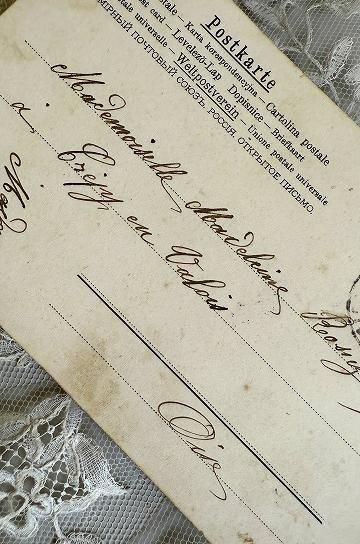 Postkarte
postale – Karta korespondencyjna – Cartolina postale
card – Levelező-Lap – Dopisnice – Briefkaart
postale universelle – Weltpostverein – Unione postale universale
МІРНЫЙ ПОЧТОВЫЙ СОЮЗЪ. РОССІЯ. ОТКРЫТОЕ ПИСЬМО.
Mademoiselle Madeleine
à Crépy en Valois
Oise